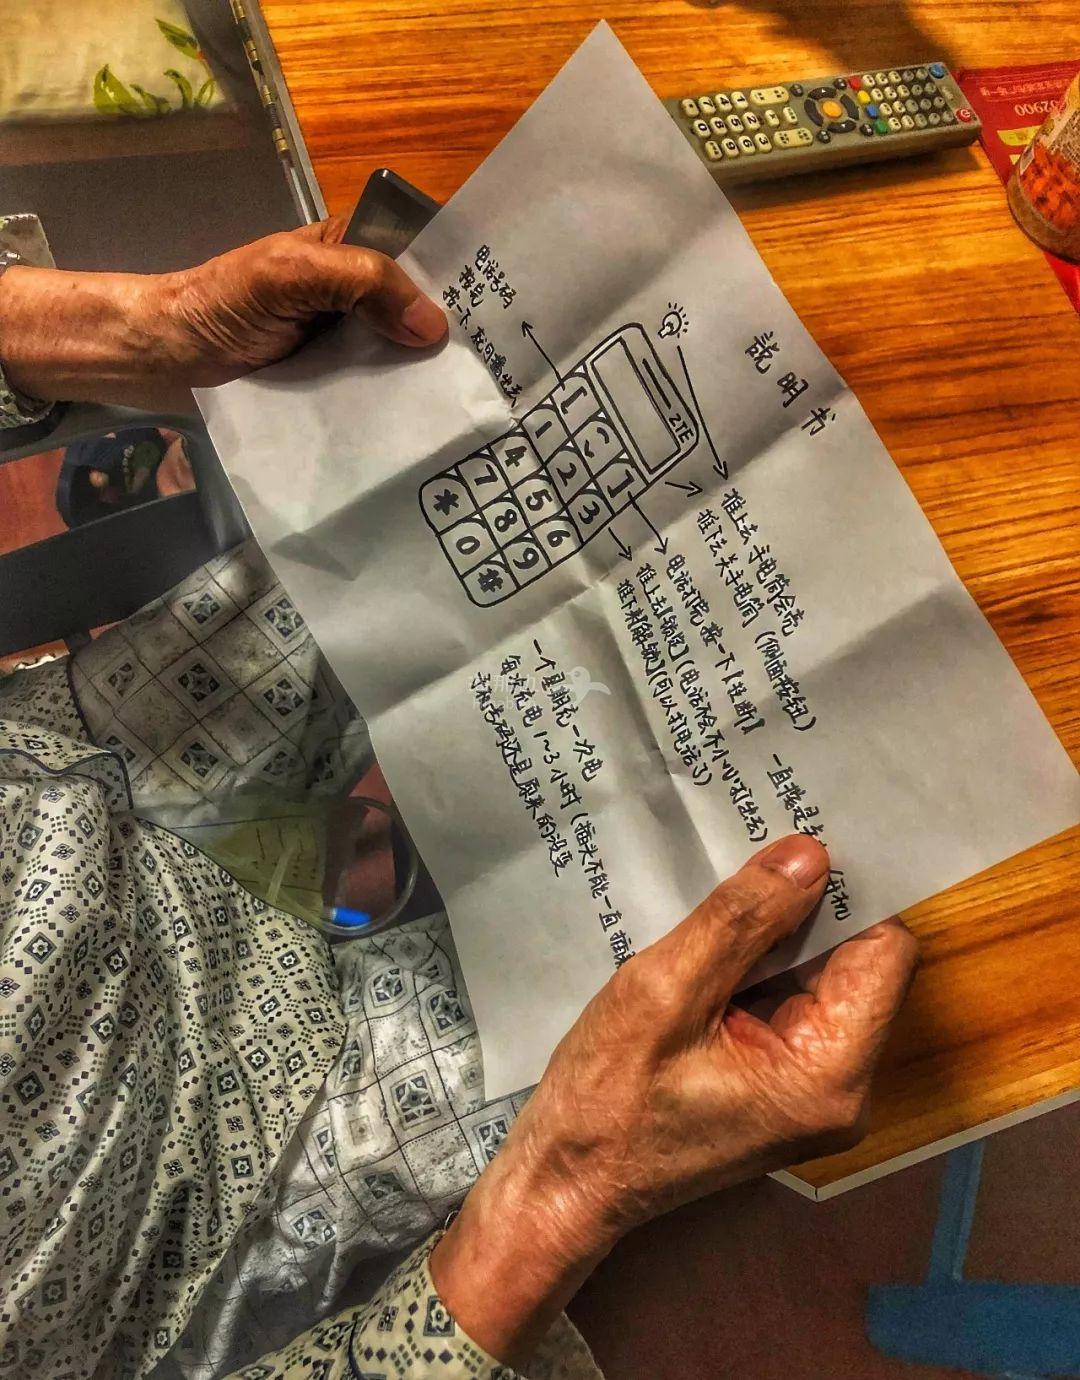 说明书
电话号码
按完
按一下, 就可拨出去
ZTE
1 2 3
4 5 6
7 8 9
* 0 #
推上去 手电筒会亮
推下去 关手电筒 (侧面按钮)
电话打完 按一下【挂断】 一直按是关 开机
推上去【锁定】(电话不会不小心打出去)
推下来【解锁】(可以打电话了)
一个星期充一次电
每次充电 1~3小时 (插头不能一直插
手机号码还是原来的没变
32900